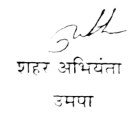 शहर अभियंता
उमपा